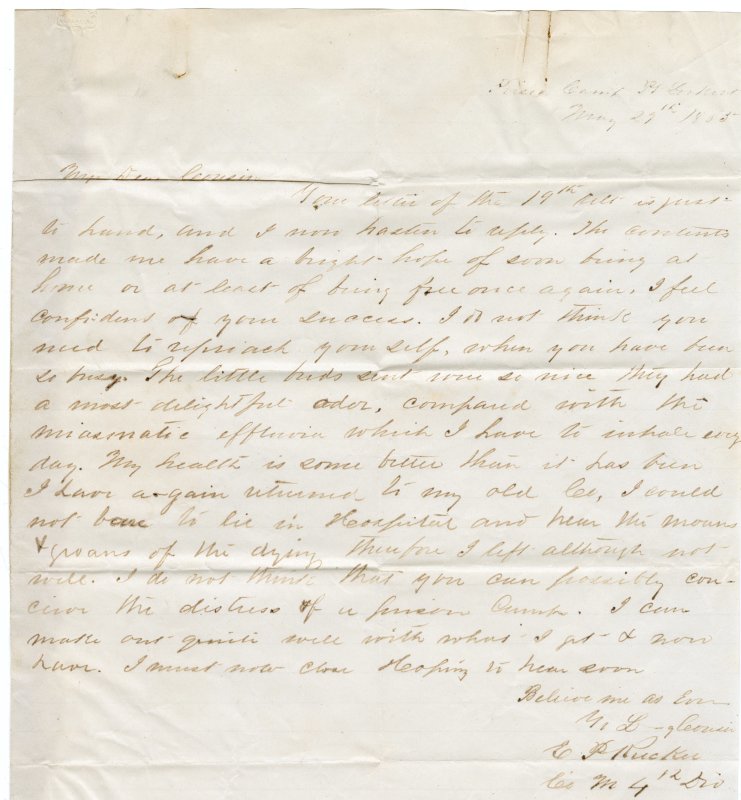 Prison Camp Pt Lookout
May 29th 1865
My Dear Cousin
Your letter of the 19th ult is just
to hand, and I now hasten to reply. The contents
made me have a bright hope of soon being at
home or at least of being free once again. I feel
confident of your success. I do not think you
need to reproach yourself, when you have been
so busy. The little buds sent were so nice they had
a most delightful odor, compared with the
miasmatic effluvia which I have to inhale every
day. My health is some better than it has been
I have a-gain returned to my old Co, I could
not bear to lie in Hospital and hear the moans
& groans of the dying therefore I left although not
well. I do not think that you can possibly con-
ceive the distress of a prison Camp. I can
make out quite well with what I get & now
have. I must now close Hoping to hear soon
Believe me as Ever
Cousin
E P Rucker
Co M 4th Div